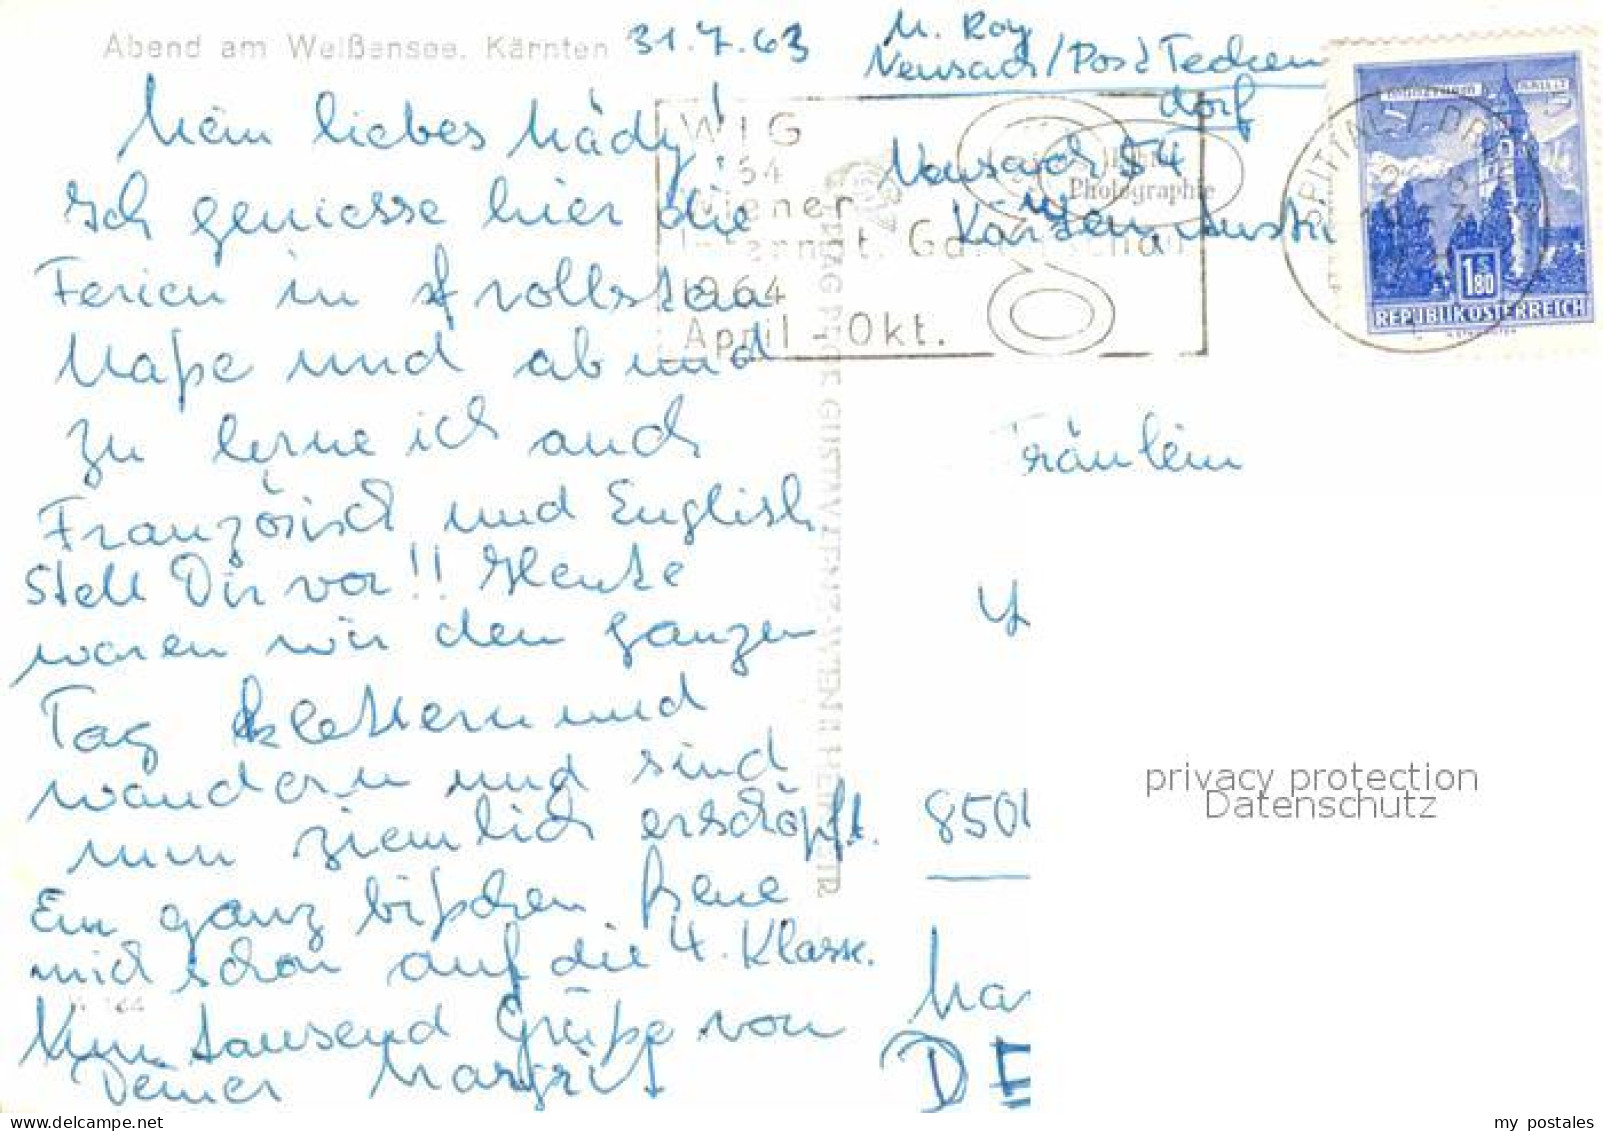 Abend am Weißensee. Kärnten
31.7.63
M. Roy
Neusach/Post Techen
dorf
Neusach 54
Kärnten Austri
Mein liebes Mädy!
Ich geniesse hier die
Ferien in vollstem
Maße und ab und
zu lerne ich auch
Französisch und English
Stell Dir vor!! Heute
waren wir den ganzen
Tag klettern und
wandern und sind
nun ziemlich erschöpft.
Ein ganz bißchen freue
mich schon auf die 4. Klasse.
Nun tausend Grüße von
Deiner Margrit
WIG
64
Wiener
Internat. Gartenschau
1964
April - Okt.
Photographie
SPITTAL / DR
TIROL
1 S 80
REPUBLIK ÖSTERREICH
Fräulein
850
Ha
DE
privacy protection
Datenschutz
my postales